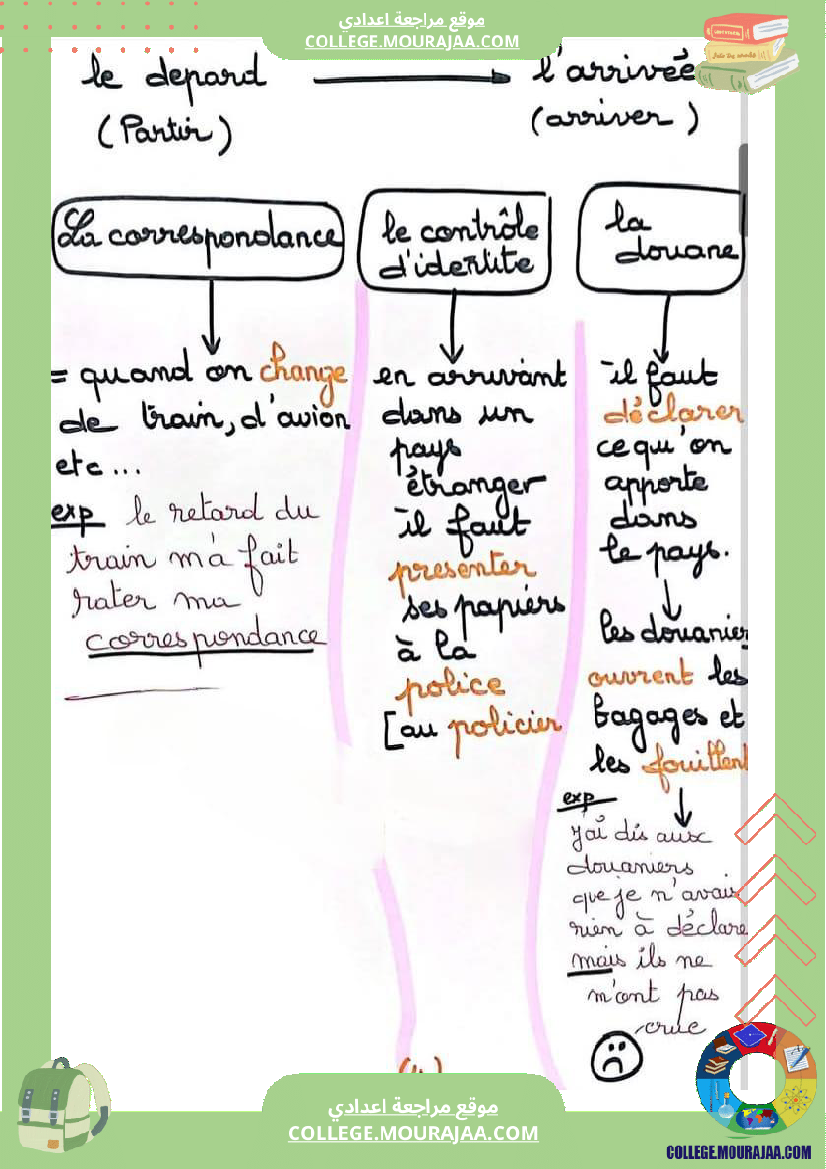 موقع مراجعة اعدادي
COLLEGE.MOURAJAA.COM
le depard
l'arrivée
(Partir)
(arriver)
La correspondance
= quand on change
de train, d'avion
etc...
exp le retard du
train m'a fait
rater ma
correspondance
le contrôle
d'identite
en arrivant
dans un
pays
étranger
il faut
presenter
ses papiérs
à la
police
[au policier
la
douane
il faut
déclarer
ce qu'on
apporte
dans
le pays.
les douanier
ouvrent les
bagages et
les fouillent
exp
j'ai dis aux
douaniers
que je n'avais
rien à déclare
mais ils ne
m'ont pas
crue
موقع مراجعة اعدادي
COLLEGE.MOURAJAA.COM
COLLEGE.MOURAJAA.COM